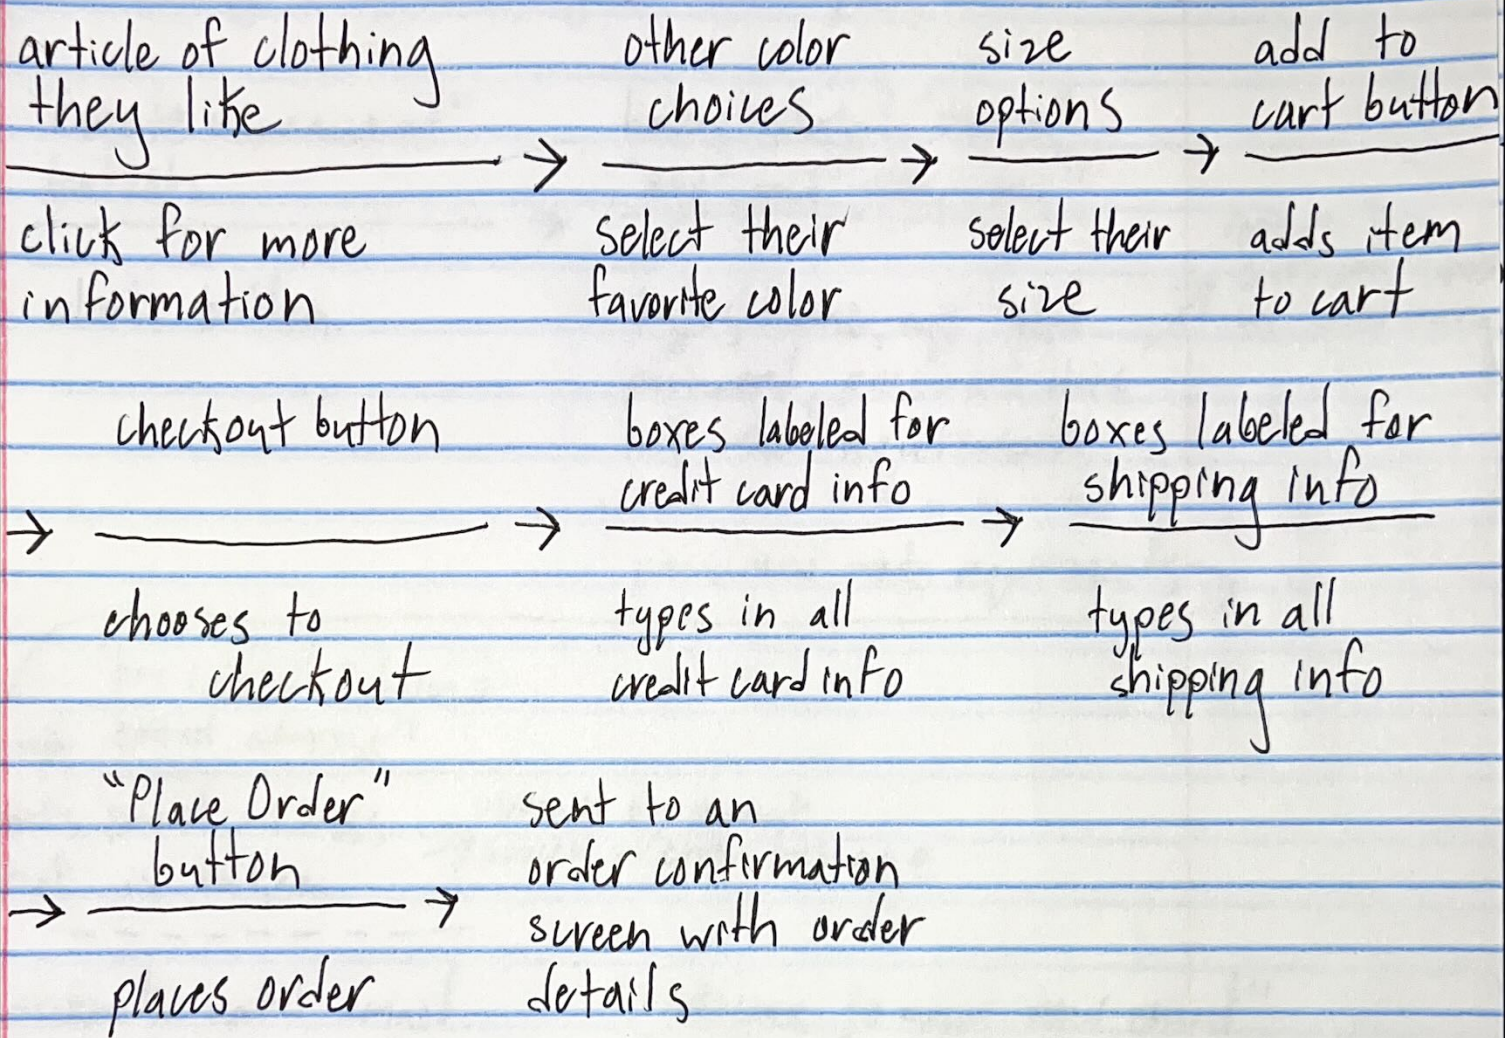 article of clothing
they like
→
click for more
information
other color
choices
→
select their
favorite color
size
options
→
select their
size
add to
cart button
adds item
to cart
→
checkout button
→
chooses to
checkout
boxes labeled for
credit card info
→
types in all
credit card info
boxes labeled for
shipping info
types in all
shipping info
→
"Place Order"
button
→
places order
sent to an
order confirmation
screen with order
details